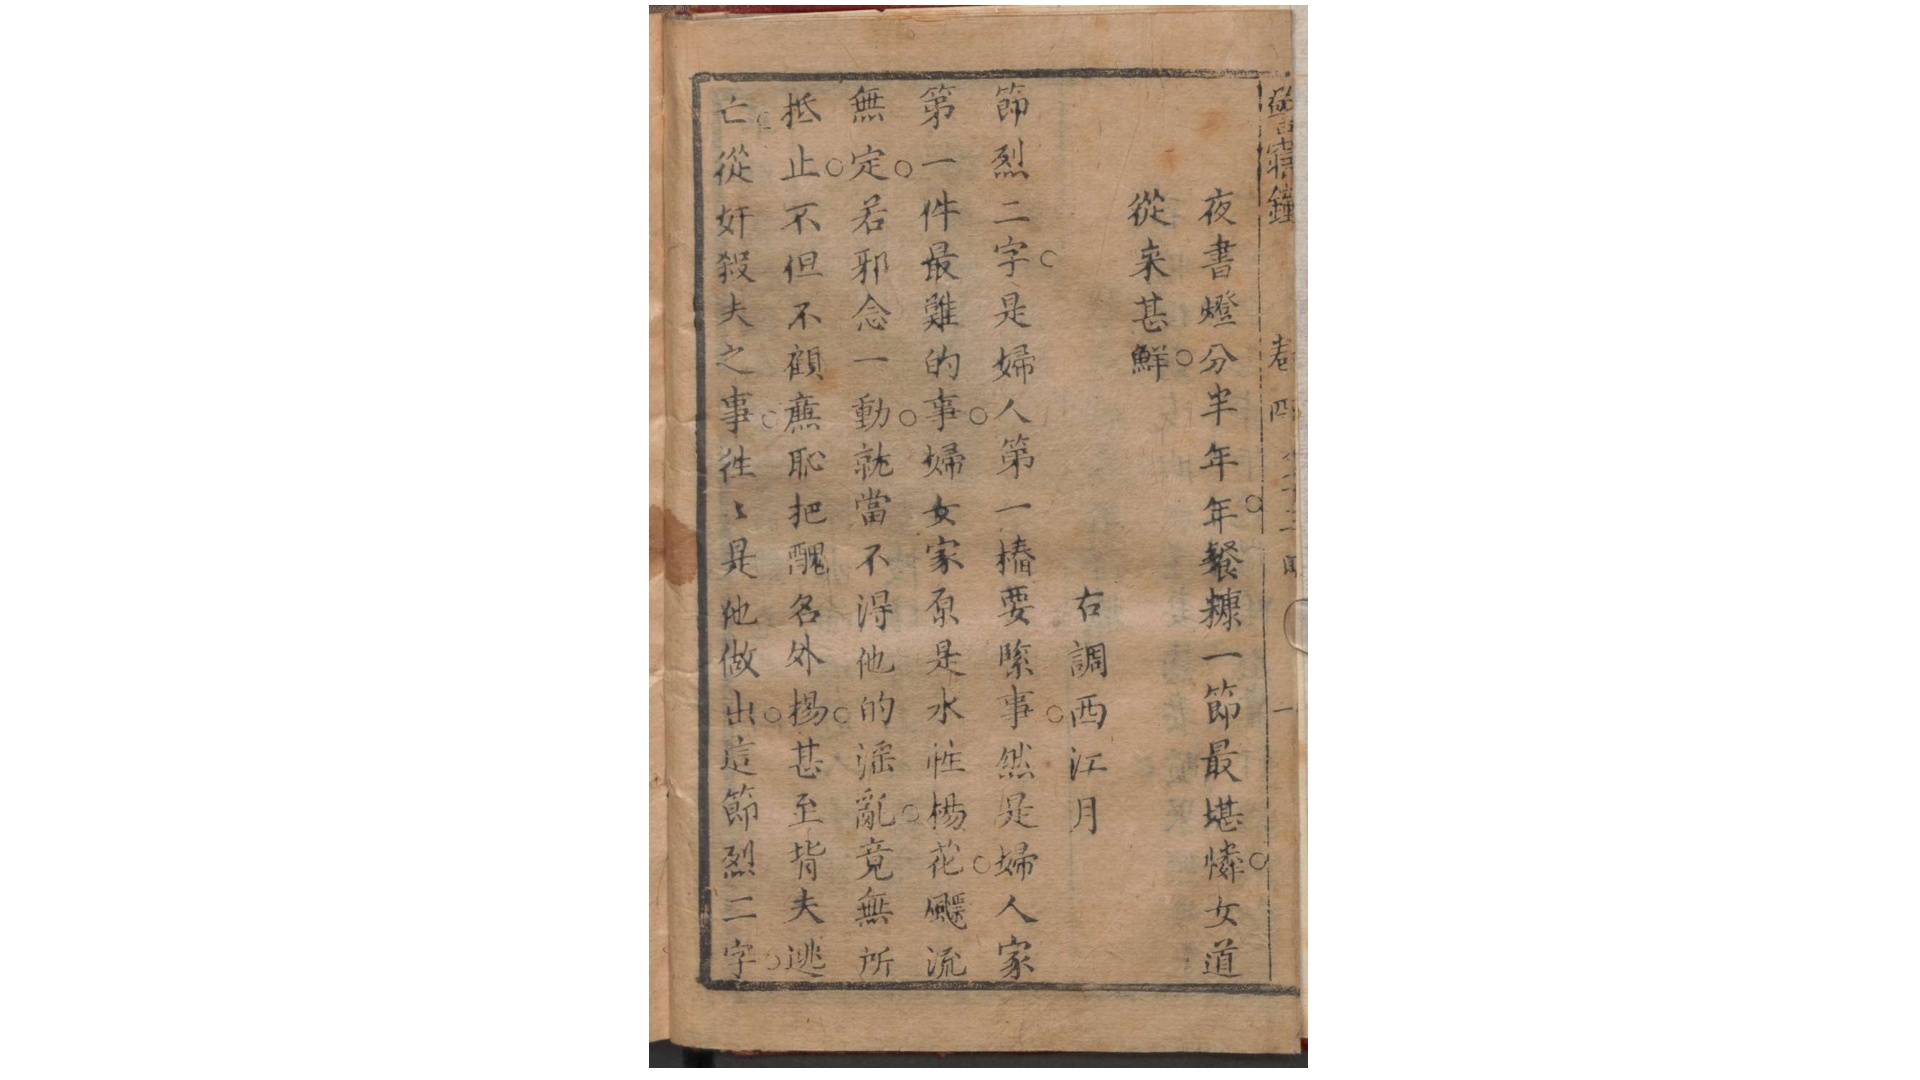 警寤鐘　卷四　一
夜書燈分半年。年餐糠一節最堪憐。女道
從来甚鮮。
右調西江月
節烈二字。是婦人第一樁要緊事。然是婦人家
第一件最難的事。婦女家原是水性楊花。飃流
無定。若邪念一動。就當不得他的滛亂。竟無所
抵止。不但不顧廉恥把醜名外揚。甚至背夫逃
亡從奸殺夫之事。徃〻是他做出。這節烈二字。